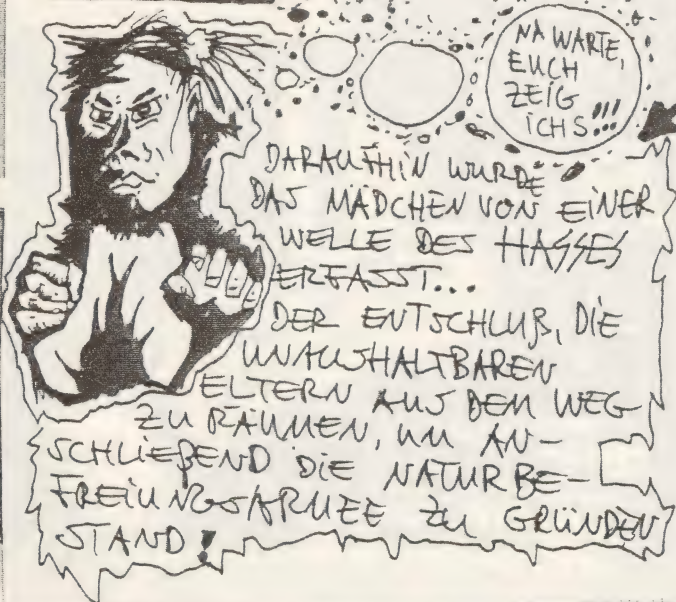 NA WARTE,
EUCH
ZEIG
ICHS!!!
DARAUFHIN WURDE
DAS MÄDCHEN VON EINER
WELLE DES HASSES
ERFASST...
DER ENTSCHLUß, DIE
UNAUSHALTBAREN
ELTERN AUS DEM WEG
ZU RÄUMEN, UM AN-
SCHLIEßEND DIE NATURBE-
FREIUNGSARMEE ZU GRÜNDEN
STAND!